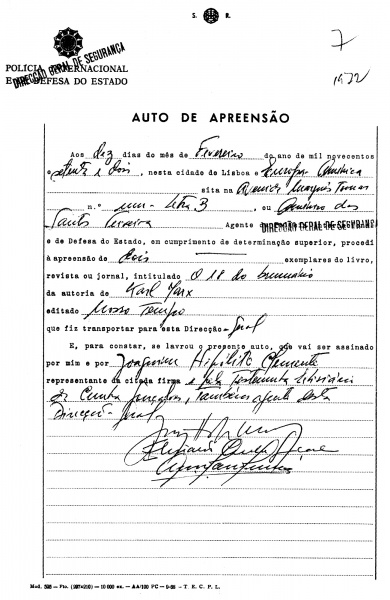 S. R.
7
1972
POLÍCIA INTERNACIONAL
E DE DEFESA DO ESTADO
DIRECÇÃO GERAL DE SEGURANÇA
AUTO DE APREENSÃO
Aos dez dias do mês de Fevereiro do ano de mil novecentos
e setenta e dois, nesta cidade de Lisboa e Europa-América
sita na Avenida Marquês Tomar
n.º um-letra B, eu Américo dos
Santos Teixeira Agente DIRECÇÃO GERAL DE SEGURANÇA
e de Defesa do Estado, em cumprimento de determinação superior, procedi
à apreensão de dois exemplares do livro,
revista ou jornal, intitulado O 18 do brumário
da autoria de Karl Marx
editado Nosso Tempo
que fiz transportar para esta Direcção-Geral
E, para constar, se lavrou o presente auto, que vai ser assinado
por mim e por Joaquim Hipólito Clemente
representante da citada firma e pela testemunha
da Cunha Gonçalves, também agente desta
Direcção-Geral
Mod. 528 — Fto. (297×210) — 10 000 ex. — AA/100 PC — 9-68 — T. E. C. P. L.